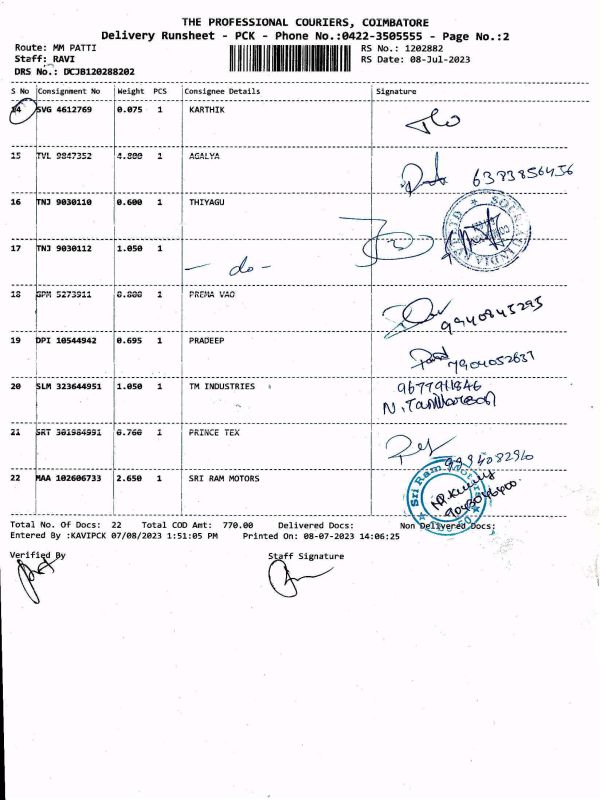 THE PROFESSIONAL COURIERS, COIMBATORE
Delivery Runsheet - PCK - Phone No.:0422-3505555 - Page No.:2
Route: MM PATTI RS No.: 1202882
Staff: RAVI RS Date: 08-Jul-2023
DRS No.: DCJB120288202
S No Consignment No Weight PCS Consignee Details Signature
14 SVG 4612769 0.075 1 KARTHIK
15 TVL 9847352 4.800 1 AGALYA
6383856456
16 TNJ 9030110 0.600 1 THIYAGU
17 TNJ 9030112 1.050 1
- do -
18 GPM 5273911 0.800 1 PREMA VAO
9940845295
19 DPI 10544942 0.695 1 PRADEEP
7904052637
20 SLM 323644951 1.050 1 TM INDUSTRIES 9677911846
21 SRT 301984991 0.760 1 PRINCE TEX
9994082960
22 MAA 102606733 2.650 1 SRI RAM MOTORS
Sri Ram Motors
Total No. Of Docs: 22 Total COD Amt: 770.00 Delivered Docs: Non Delivered Docs:
Entered By :KAVIPCK 07/08/2023 1:51:05 PM Printed On: 08-07-2023 14:06:25
Verified By Staff Signature